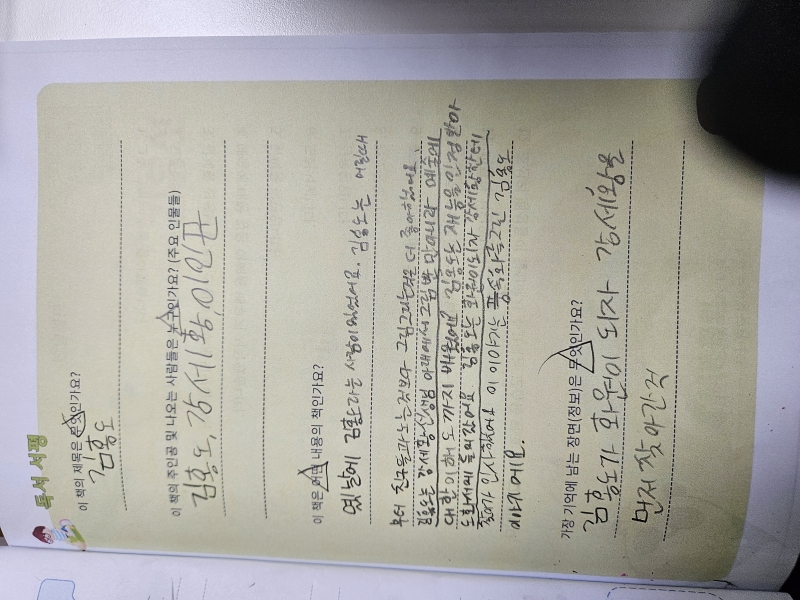 독서 서평
이 책의 제목은 무엇인가요?
김홍도
이 책의 주인공 및 나오는 사람들은 누구인가요? (주요 인물들)
김홍도, 강세황, 이인문
이 책은 어떤 내용의 책인가요?
옛날에 김홍도라는 사람이 있었어요. 김홍도는 어릴때
부터 친구들과 노는것보다 그림그리는것을 더 좋아했어요.
김홍도는 강세황 선생님 아래에서 그림 뿐만아니라 예술에
대한 이해도 까지 배웠어요. 김홍도는 재능을 인정 받아
도화서에 들어갔어요. 김홍도는 화원이되자 강세황한테
찾아가 인사했어요. 이 이야기는 풍속화를그린 김홍도
이야기 예요.
가장 기억에 남는 장면(정보)은 무엇인가요?
김홍도가 화원이 되자 강세황을
먼저 찾아간것